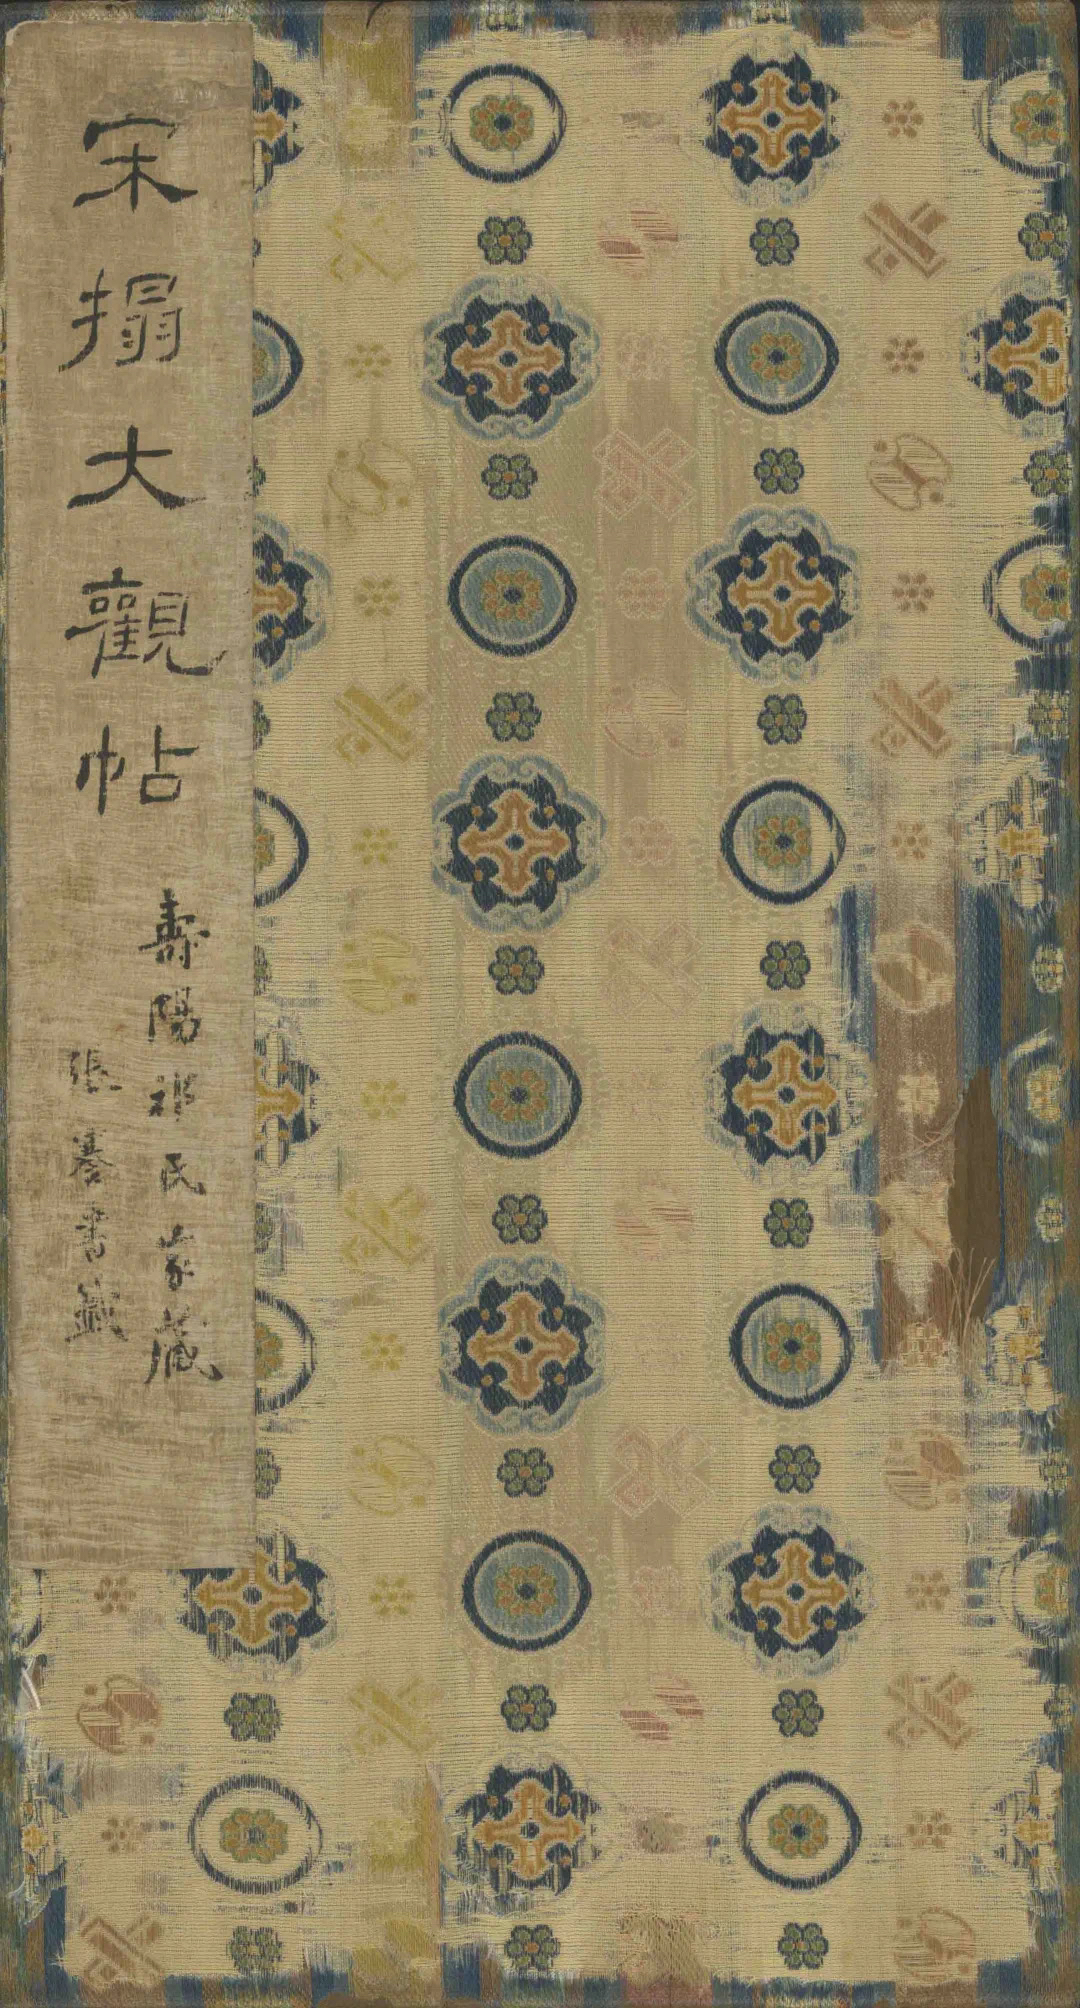 宋搨大觀帖
壽陽祁氏家藏
張騫書籤